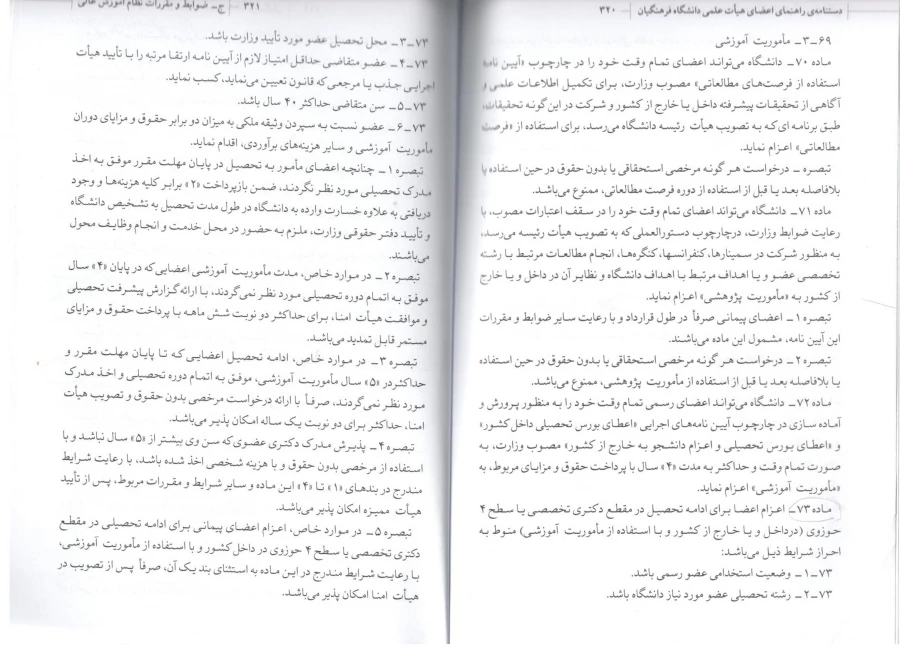 دستنامه‌ی راهنمای اعضای هیأت علمی دانشگاه فرهنگیان — ۳۲۰
۶۹-۳- مأموریت آموزشی
ماده ۷۰- دانشگاه می‌تواند اعضای تمام وقت خود را در چارچوب «آیین نامه
استفاده از فرصت‌های مطالعاتی» مصوب وزارت، برای تکمیل اطلاعات علمی و
آگاهی از تحقیقات پیشرفته داخل یا خارج از کشور و شرکت در این‌گونه تحقیقات،
طبق برنامه ای که به تصویب هیأت رئیسه دانشگاه می‌رسد، برای استفاده از «فرصت
مطالعاتی» اعزام نماید.
تبصره – درخواست هر گونه مرخصی استحقاقی یا بدون حقوق در حین استفاده یا
بلافاصله بعد یا قبل از استفاده از دوره فرصت مطالعاتی، ممنوع می‌باشد.
ماده ۷۱- دانشگاه می‌تواند اعضای تمام وقت خود را در سقف اعتبارات مصوب، با
رعایت ضوابط وزارت، درچارچوب دستورالعملی که به تصویب هیأت رئیسه می‌رسد،
به منظور شرکت در سمینارها، کنفرانسها، کنگره‌ها، انجام مطالعات مرتبط با رشته
تخصصی عضو و یا اهداف مرتبط با اهداف دانشگاه و نظایر آن در داخل و یا خارج
از کشور به «مأموریت پژوهشی» اعزام نماید.
تبصره ۱- اعضای پیمانی صرفاً در طول قرارداد و با رعایت سایر ضوابط و مقررات
این آیین نامه، مشمول این ماده می‌باشند.
تبصره ۲- درخواست هر گونه مرخصی استحقاقی یا بدون حقوق در حین استفاده
یا بلافاصله بعد یا قبل از استفاده از مأموریت پژوهشی، ممنوع می‌باشد.
ماده ۷۲- دانشگاه می‌تواند اعضای رسمی تمام وقت خود را به منظور پرورش و
آماده سازی در چارچوب آیین نامه‌های اجرایی «اعطای بورس تحصیلی داخل کشور»
و «اعطای بورس تحصیلی و اعزام دانشجو به خارج از کشور» مصوب وزارت، به
صورت تمام وقت و حداکثر به مدت «۴» سال با پرداخت حقوق و مزایای مربوط، به
«مأموریت آموزشی» اعزام نماید.
ماده ۷۳- اعزام اعضا برای ادامه تحصیل در مقطع دکتری تخصصی یا سطح ۴
حوزوی (درداخل و یا خارج از کشور و با استفاده از مأموریت آموزشی) منوط به
احراز شرایط ذیل می‌باشد:
۷۳-۱- وضعیت استخدامی عضو رسمی باشد.
۷۳-۲- رشته تحصیلی عضو مورد نیاز دانشگاه باشد.
۳۲۱ — ج- ضوابط و مقررات نظام آموزش عالی
۷۳-۳- محل تحصیل عضو مورد تأیید وزارت باشد.
۷۳-۴- عضو متقاضی حداقل امتیاز لازم از آیین نامه ارتقا مرتبه را با تأیید هیأت
اجرایی جذب یا مرجعی که قانون تعیین می‌نماید، کسب نماید.
۷۳-۵- سن متقاضی حداکثر ۴۰ سال باشد.
۷۳-۶- عضو نسبت به سپردن وثیقه ملکی به میزان دو برابر حقوق و مزایای دوران
مأموریت آموزشی و سایر هزینه‌های برآوردی، اقدام نماید.
تبصره ۱- چنانچه اعضای مأمور به تحصیل در پایان مهلت مقرر موفق به اخذ
مدرک تحصیلی مورد نظر نگردند، ضمن بازپرداخت «۲» برابر کلیه هزینه‌ها و وجوه
دریافتی به علاوه خسارت وارده به دانشگاه در طول مدت تحصیل به تشخیص دانشگاه
و تأیید دفتر حقوقی وزارت، ملزم به حضور در محل خدمت و انجام وظایف محول
می‌باشند.
تبصره ۲- در موارد خاص، مدت مأموریت آموزشی اعضایی که در پایان «۴» سال
موفق به اتمام دوره تحصیلی مورد نظر نمی‌گردند، با ارائه گزارش پیشرفت تحصیلی
و موافقت هیأت امنا، برای حداکثر دو نوبت شش ماهه با پرداخت حقوق و مزایای
مستمر قابل تمدید می‌باشد.
تبصره ۳- در موارد خاص، ادامه تحصیل اعضایی که تا پایان مهلت مقرر و
حداکثردر «۵» سال مأموریت آموزشی، موفق به اتمام دوره تحصیلی و اخذ مدرک
مورد نظر نمی‌گردند، صرفاً با ارائه درخواست مرخصی بدون حقوق و تصویب هیأت
امنا، حداکثر برای دو نوبت یک ساله امکان پذیر می‌باشد.
تبصره ۴- پذیرش مدرک دکتری عضوی که سن وی بیشتر از «۵» سال نباشد و با
استفاده از مرخصی بدون حقوق و با هزینه شخصی اخذ شده باشد، با رعایت شرایط
مندرج در بندهای «۱» تا «۴» این ماده و سایر شرایط و مقررات مربوط، پس از تأیید
هیأت ممیزه امکان پذیر می‌باشد.
تبصره ۵- در موارد خاص، اعزام اعضای پیمانی برای ادامه تحصیلی در مقطع
دکتری تخصصی یا سطح ۴ حوزوی در داخل کشور و با استفاده از مأموریت آموزشی،
با رعایت شرایط مندرج در این ماده به استثنای بند یک آن، صرفاً پس از تصویب در
هیأت امنا امکان پذیر می‌باشد.